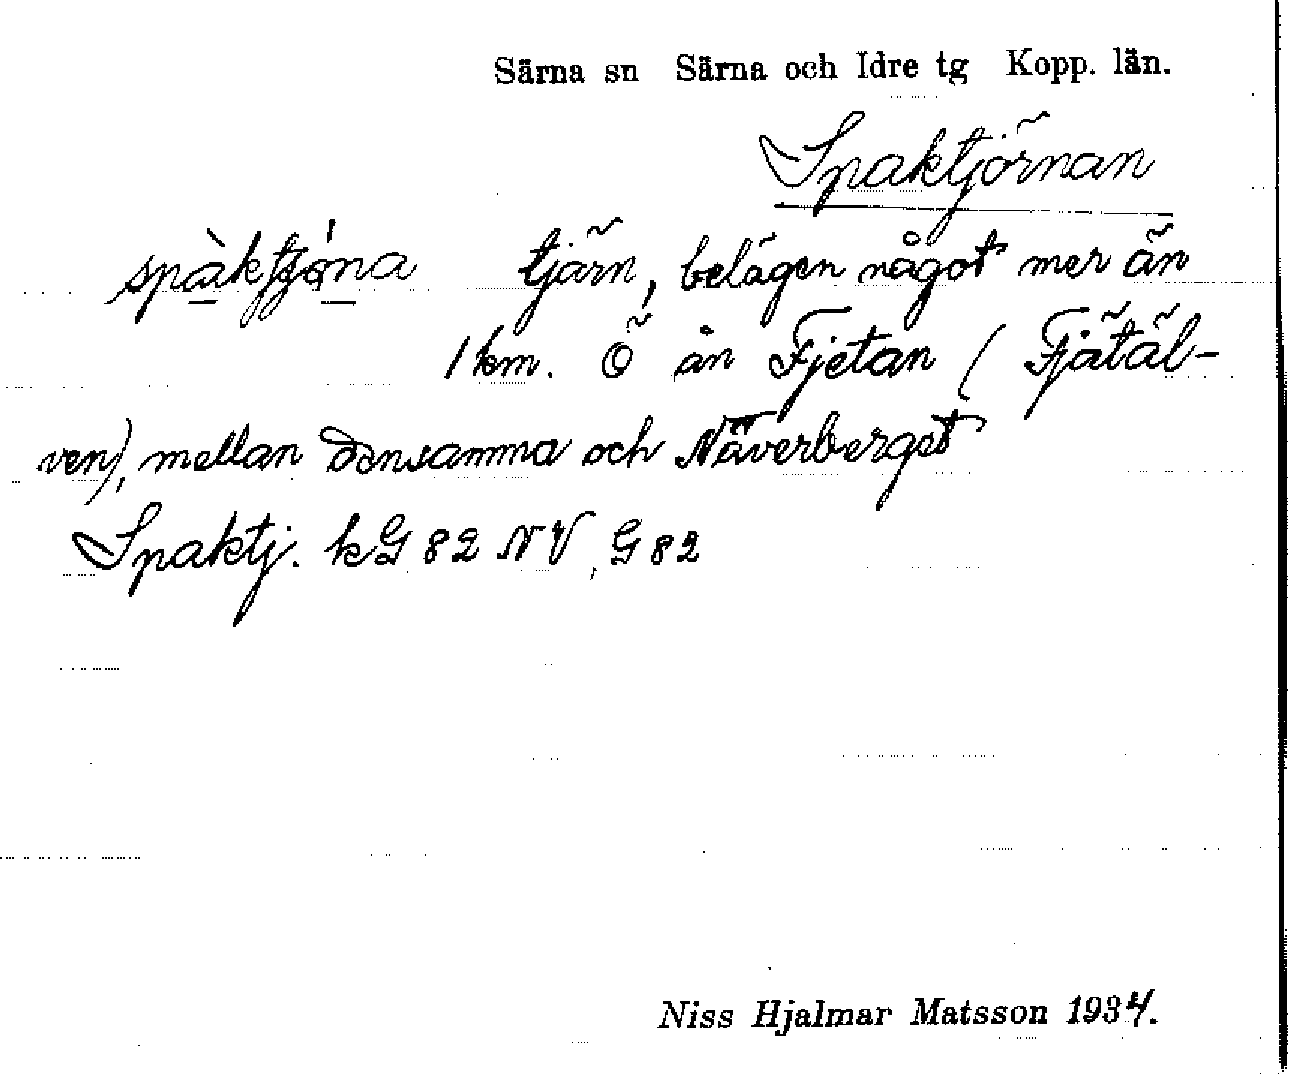 Särna sn Särna och Idre tg Kopp. län.
Spaktjörnan
spàktjǿna tjärn, belägen något mer än
1 km. Ö ån Fjetan (Fjätäl-
ven), mellan densamma och Näverberget
Spaktj. kG 82 NV, G 82
Niss Hjalmar Matsson 1934.